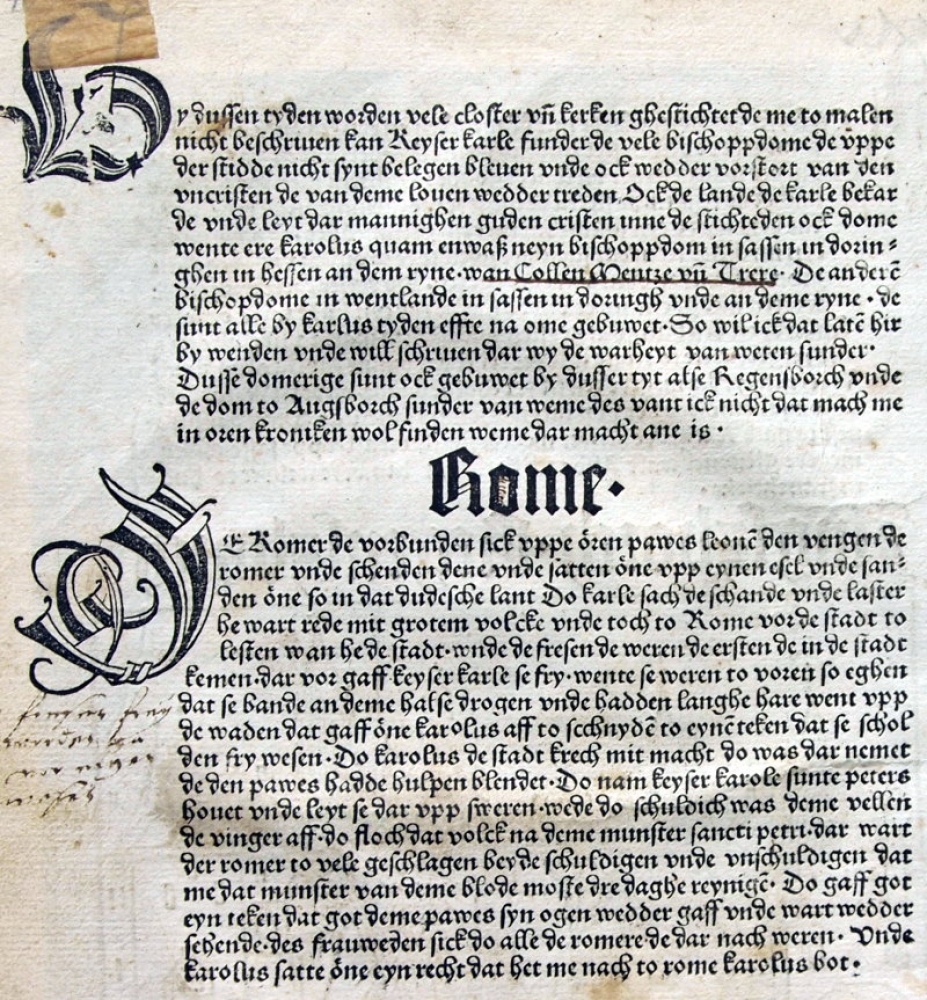 By dussen tyden worden vele closter vn̄ kerken ghestichtet de me to malen
nicht beschriuen kan Keyser karle funderde vele bischoppdome de vppe
der stidde nicht synt belegen bleuen vnde ock wedder vorstort van den
vncristen de van deme louen wedder treden Ock de lande de karle bekar
de vnde leyt dar mannighen guden cristen inne de stichteden ock dome
wente ere karolus quam enwaß neyn bischoppdom in sassen in dorin⸗
ghen in hessen an dem ryne·wan Collen Mentze vn̄ Trere· De anderē
bischopdome in wentlande in sassen in doringh vnde an deme ryne· de
sunt alle by karlus tyden effte na ome gebuwet·So wil ick dat latē hir
by wenden vnde will schriuen dar wy de warheyt van weten sunder·
Dusse domerige sunt ock gebuwet by dusser tyt alse Regensborch vnde
de dom to Augsborch sunder van weme des vant ick nicht dat mach me
in oren kroniken wol finden weme dar macht ane is·
Rome·
DE Romer de vorbunden sick vppe ören pawes leonē den vengen de
romer vnde schenden dene vnde satten öne vpp eynen esel vnde san⸗
den öne so in dat dudesche lant Do karle sach de schande vnde laster
he wart rede mit grotem volcke vnde toch to Rome vor de stadt to
lesten wan he de stadt·vnde de fresen de weren de ersten de in de stadt
kemen·dar vor gaff keyser karle se fry·wente se weren to voren so eghen
dat se bande an deme halse drogen vnde hadden langhe hare went vpp
de waden dat gaff öne karolus aff to scchnydē to eynē teken dat se schol
den fry wesen·Do karolus de stadt krech mit macht do was dar nemet
de den pawes hadde hulpen blendet·Do nam keyser karole sunte peters
houet vnde leyt se dar vpp sweren·wede do schuldich was deme vellen
de vinger aff·do floch dat volck na deme munster sancti petri·dar wart
der romer to vele geschlagen beyde schuldigen vnde vnschuldigen dat
me dat munster van deme blode moste dre daghe reynigē· Do gaff got
eyn teken dat got deme pawes syn ogen wedder gaff vnde wart wedder
sehende·des frauweden sick do alle de romere·de dar nach weren· Vnde
karolus satte öne eyn recht dat het me nach to rome karolus bot·